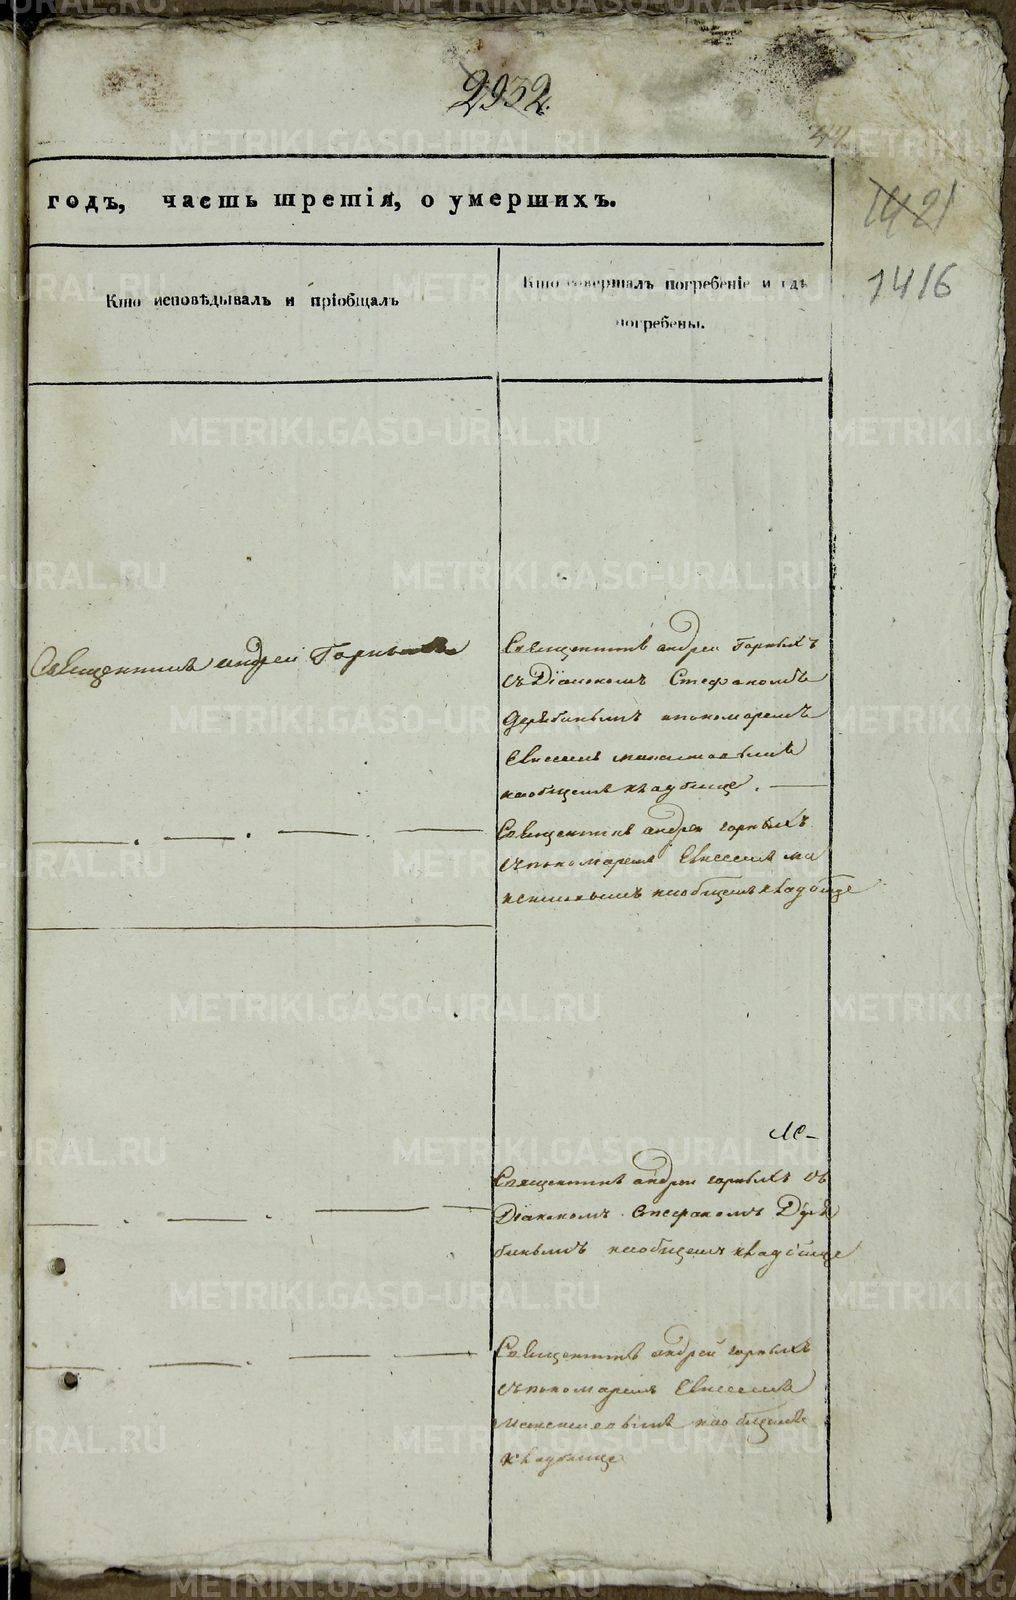 2932.
1421
1416
годъ, часть третія, о умершихъ.
Кто исповѣдывалъ и пріобщалъ
Кто совершалъ погребеніе и гдѣ
погребены.
Священникъ андрей Горныхъ
Священникъ андрей Горныхъ
съ Діакономъ Стефаномъ
Дерябинымъ пономаремъ
Евсеемъ
на общемъ кладбище.
Священникъ андрей горныхъ
съ пономаремъ Евсеемъ
на общемъ кладбище
Священникъ андрей горныхъ съ
Діакономъ Стефаномъ Деря
бинымъ на общемъ кладбище
Священникъ андрей горныхъ
съ пономаремъ Евсеемъ
на общемъ
кладбище
METRIKI.GASO-URAL.RU